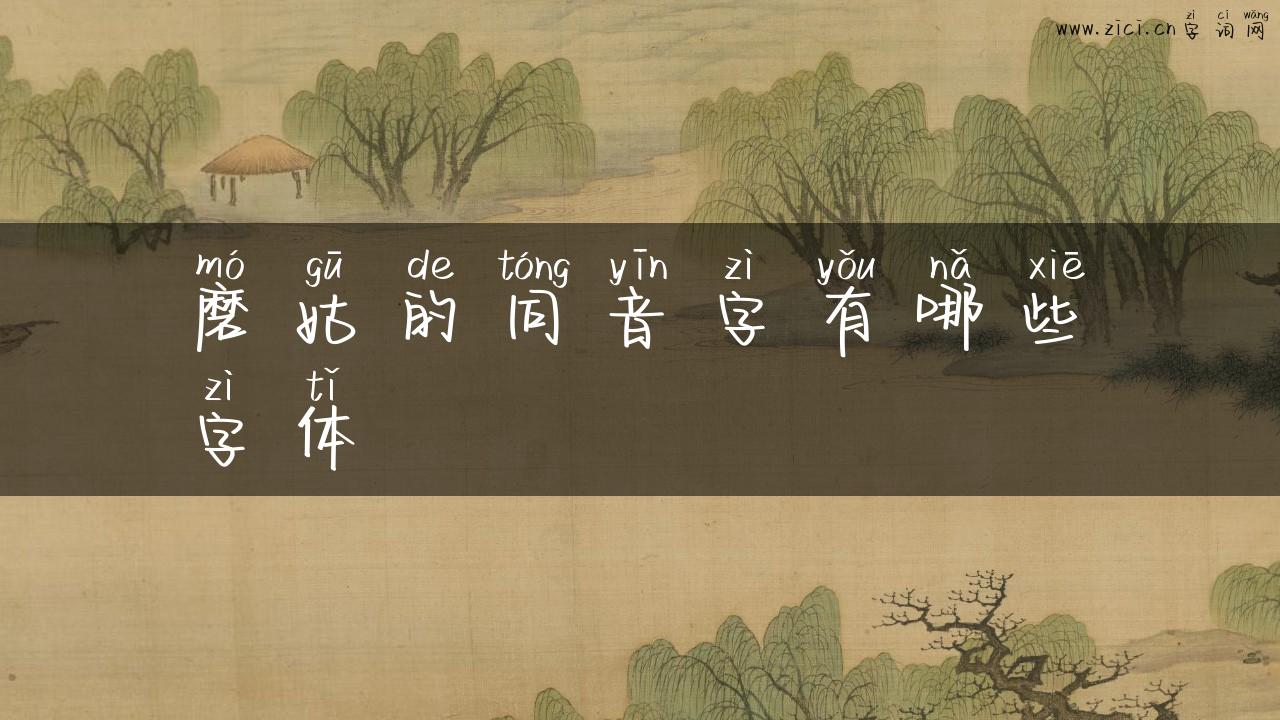 zì cí wǎng
www.zici.cn 字 词 网
mó gū de tóng yīn zì yǒu nǎ xiē
磨 姑 的 同 音 字 有 哪 些
zì tǐ
字 体